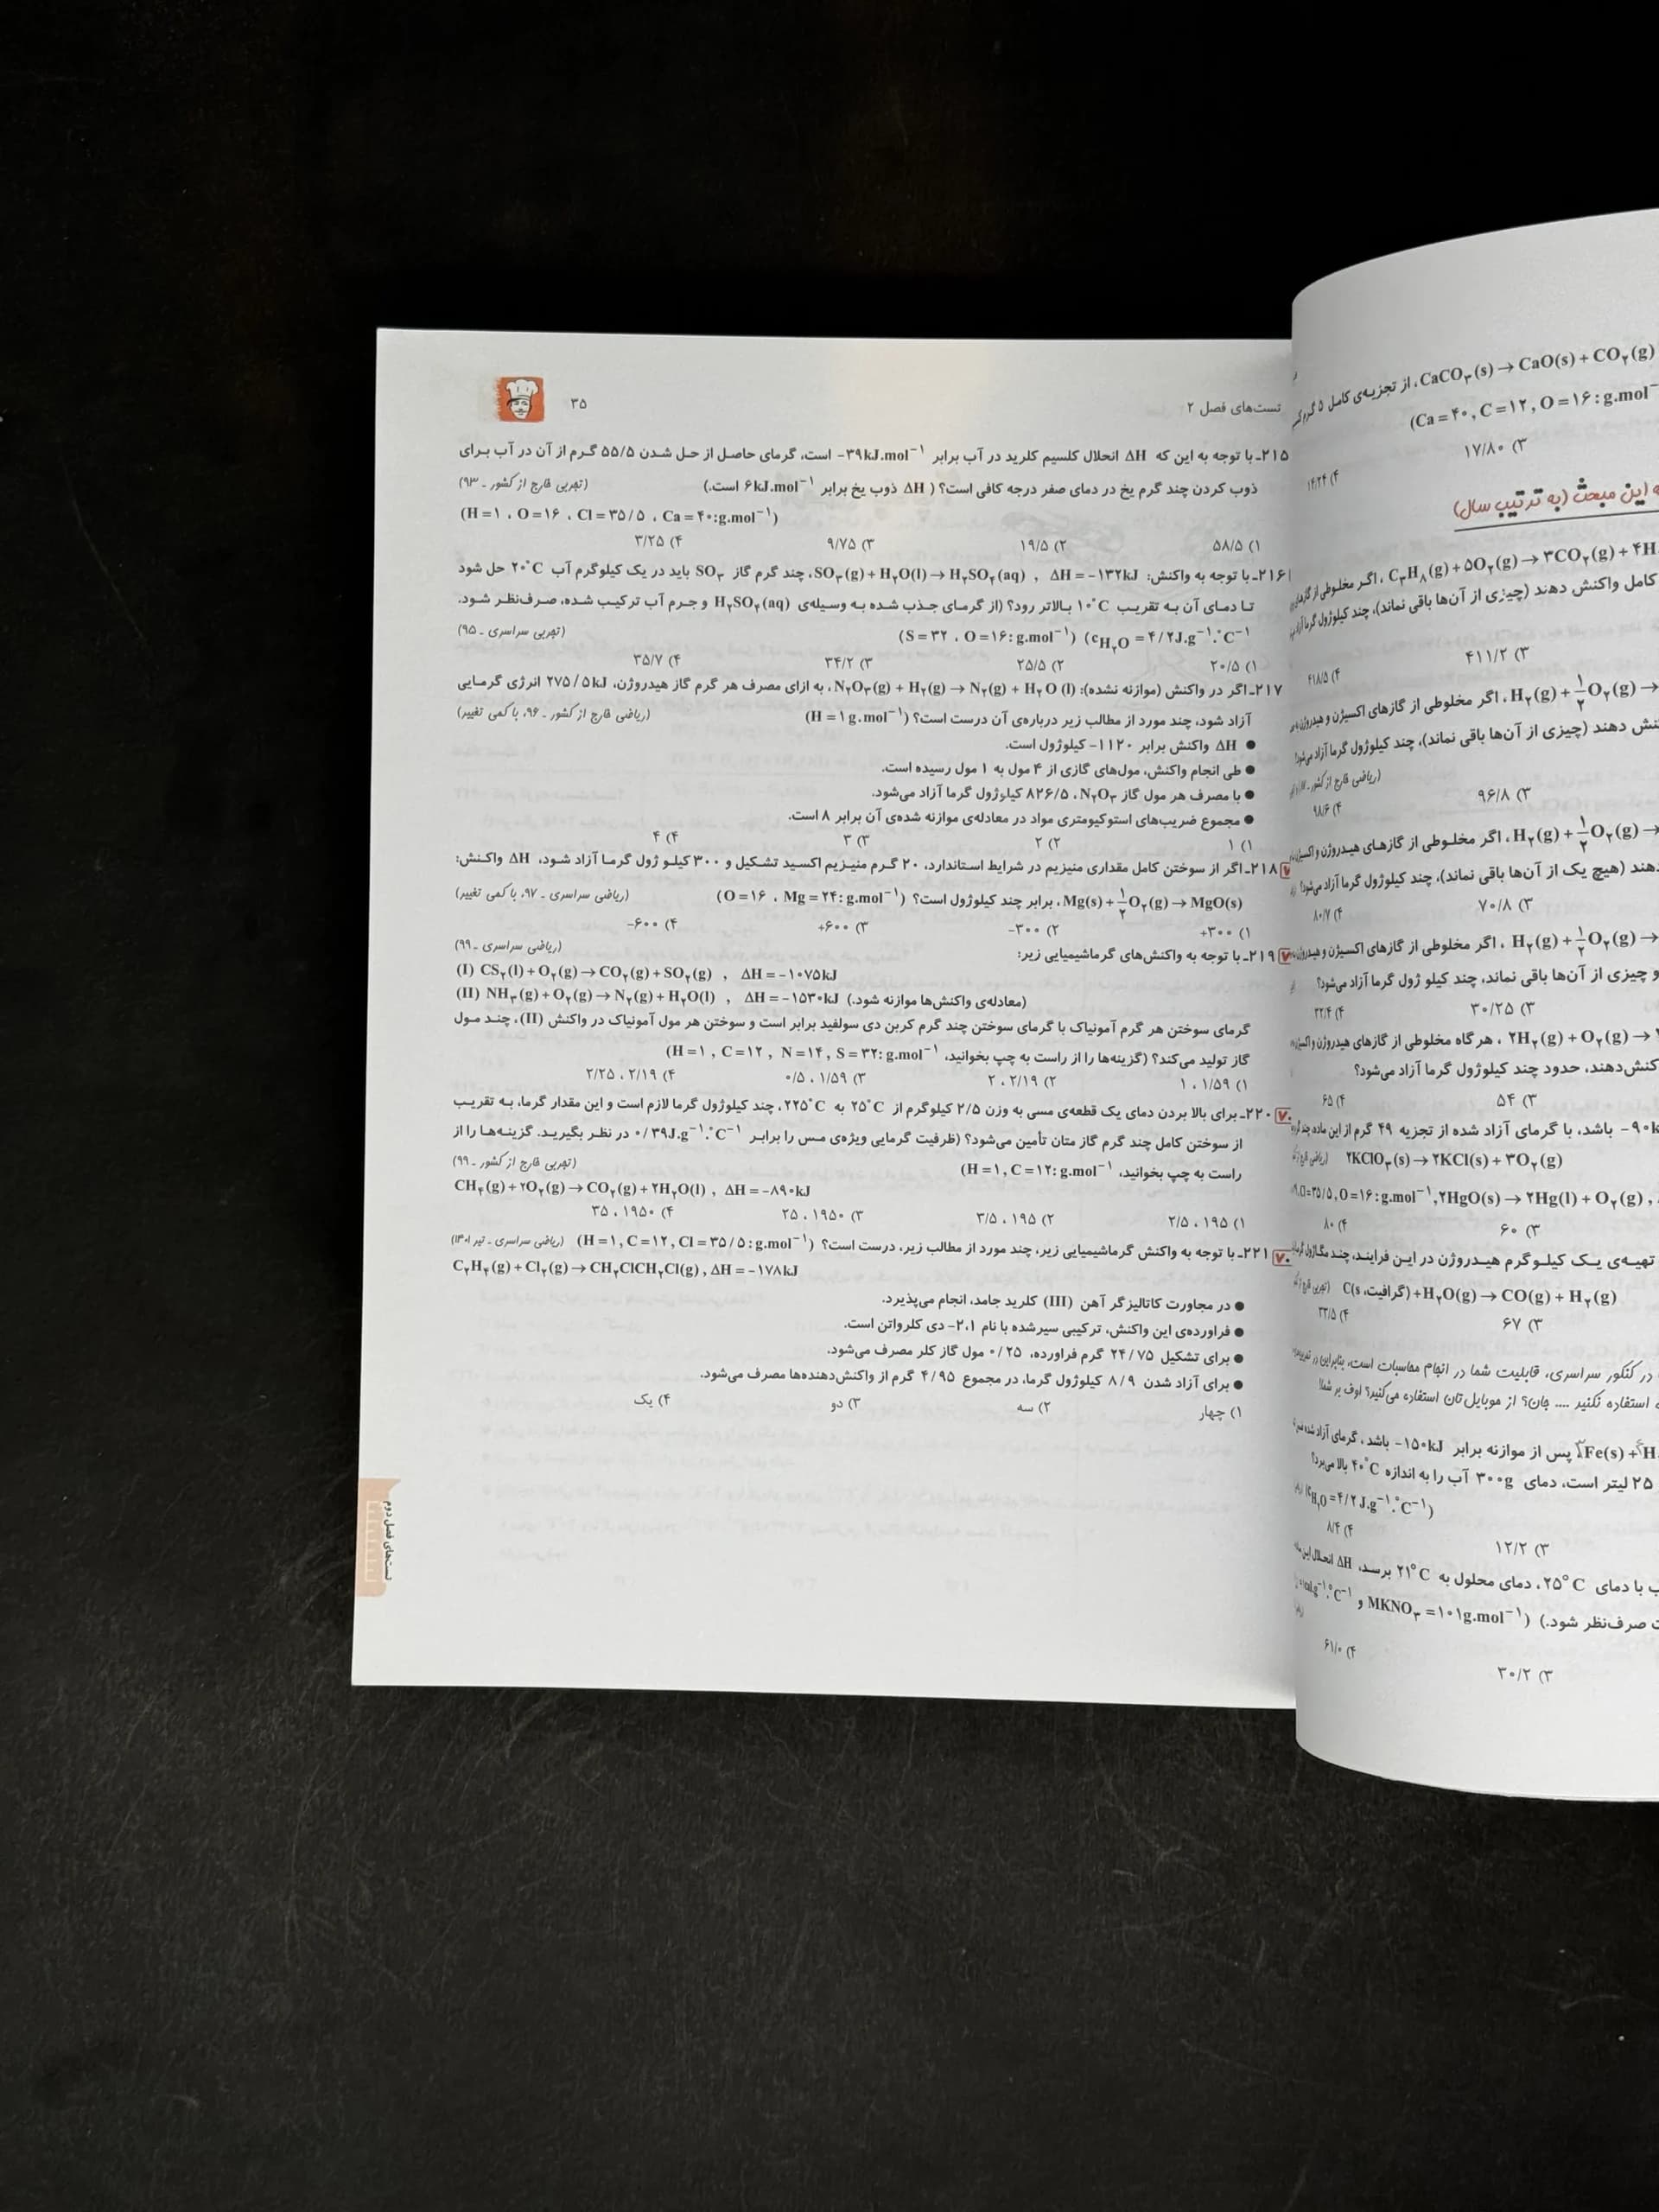 تست‌های فصل ۲
۳۵
۲۱۵ـ با توجه به این که ΔH انحلال کلسیم کلرید در آب برابر ‎−۳۹kJ.mol⁻¹ است، گرمای حاصل از حل شدن ۵۵/۵ گرم از آن در آب برای
ذوب کردن چند گرم یخ در دمای صفر درجه کافی است؟ ( ΔH ذوب یخ برابر ۶kJ.mol⁻¹ است.) (تجربی خارج از کشور ـ ۹۳)
(H=۱ , O=۱۶ , Cl=۳۵/۵ , Ca=۴۰:g.mol⁻¹)
۱) ۵۸/۵ ۲) ۱۹/۵ ۳) ۹/۷۵ ۴) ۳/۲۵
۲۱۶ـ با توجه به واکنش: SO₃(g)+H₂O(l)→H₂SO₄(aq) , ΔH=−۱۳۲kJ، چند گرم گاز SO₃ باید در یک کیلوگرم آب ۲۰°C حل شود
تا دمای آن به تقریب ۱۰°C بالاتر رود؟ (از گرمای جذب شده به وسیله‌ی H₂SO₄(aq) و جرم آب ترکیب شده، صرف‌نظر شود.
(S=۳۲ , O=۱۶:g.mol⁻¹) (c_H₂O=۴/۲J.g⁻¹.°C⁻¹) (تجربی سراسری ـ ۹۵)
۱) ۲۰/۵ ۲) ۲۵/۵ ۳) ۳۴/۲ ۴) ۳۵/۷
۲۱۷ـ اگر در واکنش (موازنه نشده): N₂O₃(g)+H₂(g)→N₂(g)+H₂O(l)، به ازای مصرف هر گرم گاز هیدروژن، ۲۷۵/۵kJ انرژی گرمایی
آزاد شود، چند مورد از مطالب زیر درباره‌ی آن درست است؟ (H=۱g.mol⁻¹) (ریاضی خارج از کشور ـ ۹۶، با کمی تغییر)
● ΔH واکنش برابر ۱۱۲۰− کیلوژول است.
● طی انجام واکنش، مول‌های گازی از ۴ مول به ۱ مول رسیده است.
● با مصرف هر مول گاز N₂O₃، ۸۲۶/۵ کیلوژول گرما آزاد می‌شود.
● مجموع ضریب‌های استوکیومتری مواد در معادله‌ی موازنه شده‌ی آن برابر ۸ است.
۱) ۱ ۲) ۲ ۳) ۳ ۴) ۴
۲۱۸ـ اگر از سوختن کامل مقداری منیزیم در شرایط استاندارد، ۲۰ گرم منیزیم اکسید تشکیل و ۳۰۰ کیلو ژول گرما آزاد شود، ΔH واکنش:
Mg(s)+½O₂(g)→MgO(s)، برابر چند کیلوژول است؟ (O=۱۶ , Mg=۲۴:g.mol⁻¹) (ریاضی سراسری ـ ۹۷، با کمی تغییر)
۱) ۳۰۰+ ۲) ۳۰۰− ۳) ۶۰۰+ ۴) ۶۰۰−
۲۱۹ـ با توجه به واکنش‌های گرماشیمیایی زیر: (ریاضی سراسری ـ ۹۹)
(I) CS₂(l)+O₂(g)→CO₂(g)+SO₂(g) , ΔH=−۱۰۷۵kJ
(II) NH₃(g)+O₂(g)→N₂(g)+H₂O(l) , ΔH=−۱۵۳۰kJ (معادله‌ی واکنش‌ها موازنه شود.)
گرمای سوختن هر گرم آمونیاک با گرمای سوختن چند گرم کربن دی سولفید برابر است و سوختن هر مول آمونیاک در واکنش (II)، چند مول
گاز تولید می‌کند؟ (گزینه‌ها را از راست به چپ بخوانید، H=۱, C=۱۲, N=۱۴, S=۳۲:g.mol⁻¹)
۱) ۱/۵۹ ، ۱ ۲) ۲/۱۹ ، ۲ ۳) ۱/۵۹ ، ۰/۵ ۴) ۲/۱۹ ، ۲/۲۵
۲۲۰ـ برای بالا بردن دمای یک قطعه‌ی مسی به وزن ۲/۵ کیلوگرم از ۲۵°C به ۲۲۵°C، چند کیلوژول گرما لازم است و این مقدار گرما، به تقریب
از سوختن کامل چند گرم گاز متان تأمین می‌شود؟ (ظرفیت گرمایی ویژه‌ی مس را برابر ۰/۳۹J.g⁻¹.°C⁻¹ در نظر بگیرید. گزینه‌ها را از
راست به چپ بخوانید، H=۱, C=۱۲:g.mol⁻¹) (تجربی خارج از کشور ـ ۹۹)
CH₄(g)+۲O₂(g)→CO₂(g)+۲H₂O(l) , ΔH=−۸۹۰kJ
۱) ۱۹۵ ، ۲/۵ ۲) ۱۹۵ ، ۳/۵ ۳) ۱۹۵۰ ، ۲۵ ۴) ۱۹۵۰ ، ۳۵
۲۲۱ـ با توجه به واکنش گرماشیمیایی زیر، چند مورد از مطالب زیر، درست است؟ (H=۱, C=۱۲, Cl=۳۵/۵:g.mol⁻¹) (ریاضی سراسری ـ تیر ۱۴۰۱)
C₂H₄(g)+Cl₂(g)→CH₂ClCH₂Cl(g), ΔH=−۱۷۸kJ
● در مجاورت کاتالیزگر آهن (III) کلرید جامد، انجام می‌پذیرد.
● فراورده‌ی این واکنش، ترکیبی سیرشده با نام ۲،۱- دی کلرواتن است.
● برای تشکیل ۲۴/۷۵ گرم فراورده، ۰/۲۵ مول گاز کلر مصرف می‌شود.
● برای آزاد شدن ۸/۹ کیلوژول گرما، در مجموع ۴/۹۵ گرم از واکنش‌دهنده‌ها مصرف می‌شود.
۱) چهار ۲) سه ۳) دو ۴) یک
تست‌های فصل دوم
CaCO₃(s)→CaO(s)+CO₂(g)، از تجزیه‌ی کامل ۵ گرم
(Ca=۴۰, C=۱۲, O=۱۶:g.mol⁻
۳) ۱۷/۸۰ ۴) ۱۴/۲۴
این مبحث (به ترتیب سال)
C₃H₈(g)+۵O₂(g)→۳CO₂(g)+۴H، اگر مخلوطی از گازهای
کامل واکنش دهند (چیزی از آن‌ها باقی نماند)، چند کیلوژول گرما آزاد
۳) ۴۱۱/۲ ۴) ۴۱۸/۵
H₂(g)+½O₂(g)→ ، اگر مخلوطی از گازهای اکسیژن و هیدروژن
دهند (چیزی از آن‌ها باقی نماند)، چند کیلوژول گرما آزاد می‌شود؟
(ریاضی خارج از کشور
۳) ۹۶/۸ ۴) ۹۸/۶
H₂(g)+½O₂(g)→ ، اگر مخلوطی از گازهای هیدروژن و اکسیژن
دهند (هیچ یک از آن‌ها باقی نماند)، چند کیلوژول گرما آزاد می‌شود؟
۳) ۷۰/۸ ۴) ۸۰/۷
H₂(g)+½O₂(g)→ ، اگر مخلوطی از گازهای اکسیژن و هیدروژن
و چیزی از آن‌ها باقی نماند، چند کیلو ژول گرما آزاد می‌شود؟
۳) ۳۰/۲۵ ۴) ۳۲/۴
۲H₂(g)+O₂(g)→ ، هرگاه مخلوطی از گازهای هیدروژن و
کنش‌دهند، حدود چند کیلوژول گرما آزاد می‌شود؟
۳) ۵۴ ۴) ۶۵
−۹۰k باشد، با گرمای آزاد شده از تجزیه ۴۹ گرم از این ماده، چند
۲KClO₃(s)→۲KCl(s)+۳O₂(g)
Cl=۳۵/۵, O=۱۶:g.mol⁻¹, ۲HgO(s)→۲Hg(l)+O₂(g),
۳) ۶۰ ۴) ۸۰
تهیه‌ی یک کیلوگرم هیدروژن در این فرایند، چند مگاژول
C(s، گرافیت)+H₂O(g)→CO(g)+H₂(g)
۳) ۶۷ ۴) ۳۳/۵
در کنکور سراسری، قابلیت شما در انجام محاسبات است، بنابراین در
استفاده نکنید .... جان؟ از موبایل‌تان استفاده می‌کنید؟ اوف بر شما!
Fe(s)+H پس از موازنه برابر ۱۵۰kJ− باشد، گرمای آزاد شده
۲۵ لیتر است، دمای ۳۰۰g آب را به اندازه ۴۰°C بالا می‌برد؟
(c_H₂O=۴/۲J.g⁻¹.°C⁻¹)
۳) ۱۲/۲ ۴) ۸/۴
با دمای ۲۵°C، دمای محلول به ۲۱°C برسد، ΔH انحلال این
صرف‌نظر شود.) (MKNO₃=۱۰۱g.mol⁻¹ و
۳) ۳۰/۲ ۴) ۶۱/۰